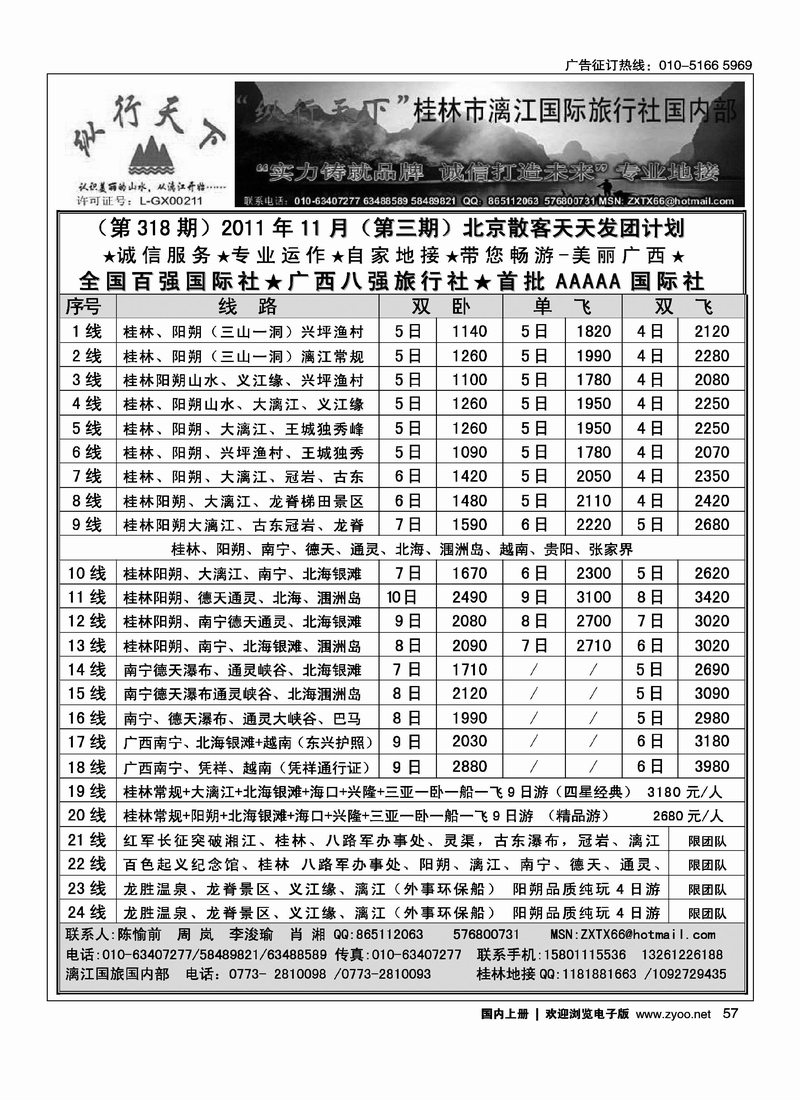 广告征订热线：010-5166 5969
纵行天下
认识美丽的山水，从漓江开始……
许可证号：L-GX00211
“纵行天下”桂林市漓江国际旅行社国内部
“实力铸就品牌 诚信打造未来”专业地接
联系电话：010-63407277 63488589 58489821 QQ：865112063 576800731 MSN: ZXTX66@hotmail.com
（第318期）2011年11月（第三期）北京散客天天发团计划
★诚信服务★专业运作★自家地接★带您畅游-美丽广西★
全国百强国际社★广西八强旅行社★首批AAAAA国际社
序号 线 路 双 卧 单 飞 双 飞
1线 桂林、阳朔（三山一洞）兴坪渔村 5日 1140 5日 1820 4日 2120
2线 桂林、阳朔（三山一洞）漓江常规 5日 1260 5日 1990 4日 2280
3线 桂林阳朔山水、义江缘、兴坪渔村 5日 1100 5日 1780 4日 2080
4线 桂林、阳朔山水、大漓江、义江缘 5日 1260 5日 1950 4日 2250
5线 桂林、阳朔、大漓江、王城独秀峰 5日 1260 5日 1950 4日 2250
6线 桂林、阳朔、兴坪渔村、王城独秀 5日 1090 5日 1780 4日 2070
7线 桂林、阳朔、大漓江、冠岩、古东 6日 1420 5日 2050 4日 2350
8线 桂林阳朔、大漓江、龙脊梯田景区 6日 1480 5日 2110 4日 2420
9线 桂林阳朔大漓江、古东冠岩、龙脊 7日 1590 6日 2220 5日 2680
桂林、阳朔、南宁、德天、通灵、北海、涠洲岛、越南、贵阳、张家界
10线 桂林阳朔、大漓江、南宁、北海银滩 7日 1670 6日 2300 5日 2620
11线 桂林阳朔、德天通灵、北海、涠洲岛 10日 2490 9日 3100 8日 3420
12线 桂林阳朔、南宁德天通灵、北海银滩 9日 2080 8日 2700 7日 3020
13线 桂林阳朔、南宁、北海银滩、涠洲岛 8日 2090 7日 2710 6日 3020
14线 南宁德天瀑布、通灵峡谷、北海银滩 7日 1710 / / 5日 2690
15线 南宁德天瀑布通灵峡谷、北海涠洲岛 8日 2120 / / 5日 3090
16线 南宁、德天瀑布、通灵大峡谷、巴马 8日 1990 / / 5日 2980
17线 广西南宁、北海银滩+越南（东兴护照） 9日 2030 / / 6日 3180
18线 广西南宁、凭祥、越南（凭祥通行证） 9日 2880 / / 6日 3980
19线 桂林常规+大漓江+北海银滩+海口+兴隆+三亚一卧一船一飞9日游（四星经典） 3180元/人
20线 桂林常规+阳朔+北海银滩+海口+兴隆+三亚一卧一船一飞9日游 （精品游） 2680元/人
21线 红军长征突破湘江、桂林、八路军办事处、灵渠，古东瀑布，冠岩、漓江 限团队
22线 百色起义纪念馆、桂林 八路军办事处、阳朔、漓江、南宁、德天、通灵、 限团队
23线 龙胜温泉、龙脊景区、义江缘、漓江（外事环保船） 阳朔品质纯玩4日游 限团队
24线 龙胜温泉、龙脊景区、义江缘、漓江（外事环保船） 阳朔品质纯玩4日游 限团队
联系人:陈愉前 周 岚 李浚瑜 肖 湘 QQ:865112063 576800731 MSN:ZXTX66@hotmail.com
电话:010-63407277/58489821/63488589 传真:010-63407277 联系手机:15801115536 13261226188
漓江国旅国内部 电话：0773- 2810098 /0773-2810093 桂林地接QQ:1181881663 /1092729435
国内上册 | 欢迎浏览电子版 www.zyoo.net 57